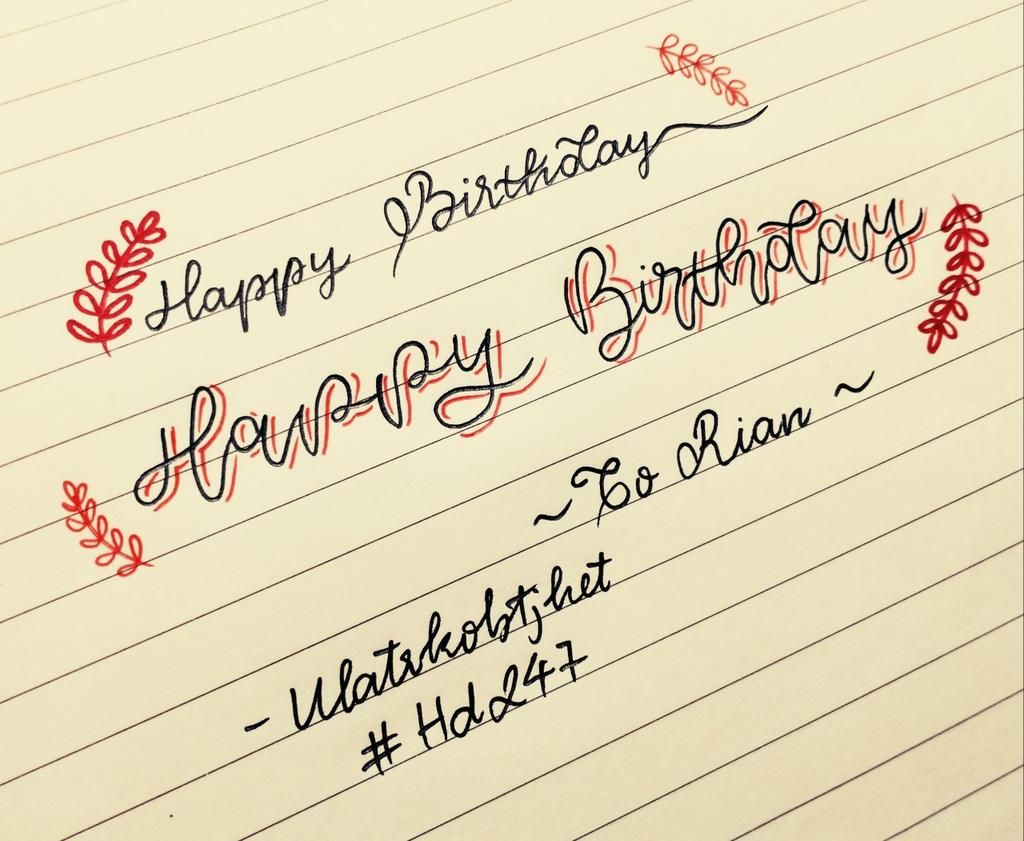 Happy Birthday
Happy Birthday
~To Rian~
- Ulatskobtjhet
# Hd247